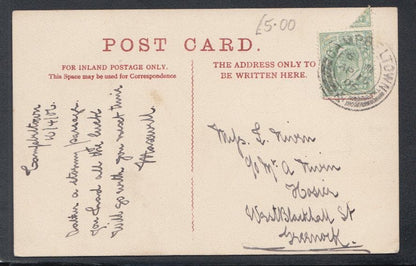 £5-00
POST CARD.
FOR INLAND POSTAGE ONLY.
This Space may be used for Correspondence
THE ADDRESS ONLY TO
BE WRITTEN HERE.
Campbeltown
Rather a stormy passage
You had all the luck
Will go with you next time
Miss L. Niven
c/o Mr A Niven
Hosier
West Blackhall St
Greenock